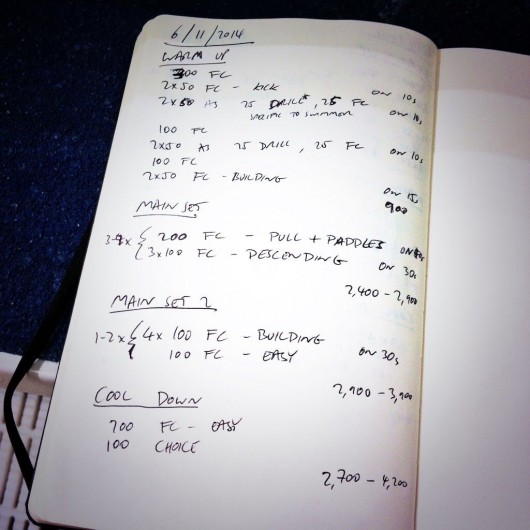 6/11/2014
WARM UP
300 FC
2x50 FC - KICK ON 10s
2x50 AS 25 DRILL, 25 FC ON 10s
SPECIFIC TO SWIMMER
100 FC
2x50 AS 25 DRILL, 25 FC ON 10s
100 FC
2x50 FC - BUILDING ON 15s
900
MAIN SET
3-4x { 200 FC - PULL + PADDLES ON
3x100 FC - DESCENDING ON 30s
2,400 - 2,900
MAIN SET 2
1-2x { 4x100 FC - BUILDING
100 FC - EASY ON 30s
2,900 - 3,900
COOL DOWN
200 FC - EASY
100 CHOICE
2,700 - 4,200